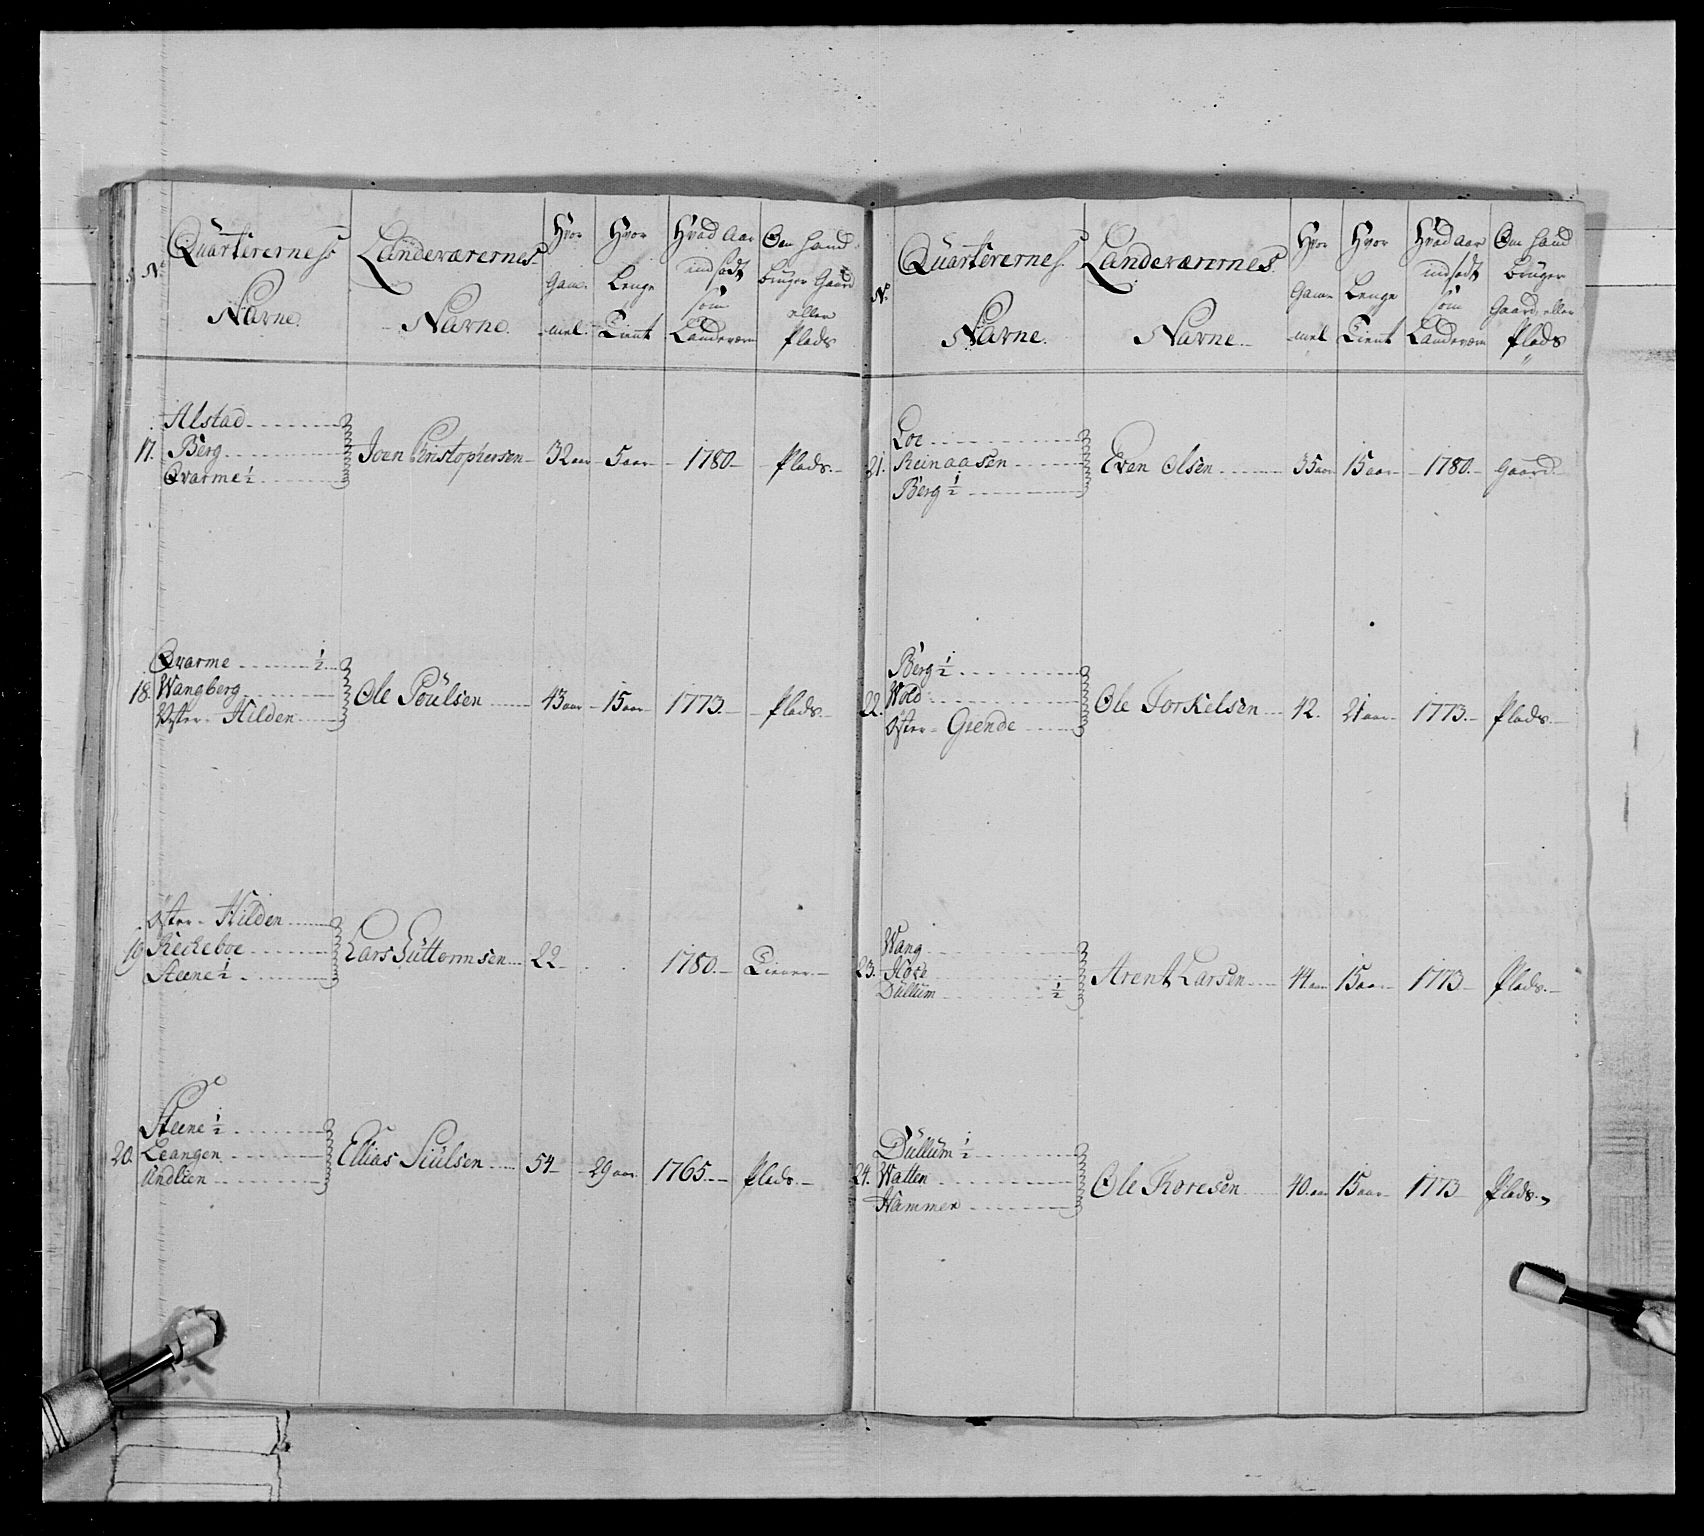 No
Quarterernes Navne.
Landeværernes Navne.
Hvor Gam- mel.
Hvor Lenge Tient
Hvad Aar indsadt som Landeværn
Om hand bruger Gaard eller Plads
Alstad
17. Berg Joen Christophersen 32 aar 5 aar 1780. Plads.
Qvarme 1/2
Qvarme 1/2
18. Wangberg Ole Poulsen 43 aar 15 aar 1773. Plads.
Øster-Hilden
Øster-Hilden
19 Reckeboe Lars Guttormsen 22 1780. Tiener
Steene 1/2
Steene 1/2
20. Leangen Ellias Siulsen 54 29 aar 1765. Plads.
Andlien
No
Quarterernes Navne.
Landeværernes Navne.
Hvor Gam- mel
Hvor Lenge Tient
Hvad Aar indsadt som Landeværn
Om hand bruger Gaard eller Plads
Loe
21. Reinaasen Even Olsen 35 aar 15 aar 1780. Gaard.
Berg 1/2
Berg 1/2
22. Wold Ole Torkelsen 42. 21 aar 1773. Plads.
Øster-Grende
Wang
23. Arent Larsen 44 aar 15 aar 1773 Plads.
Dullum 1/2
Dullum 1/2
24. Watten Ole Thoresen 40. aar 15 aar 1773 Plads.
Hammer